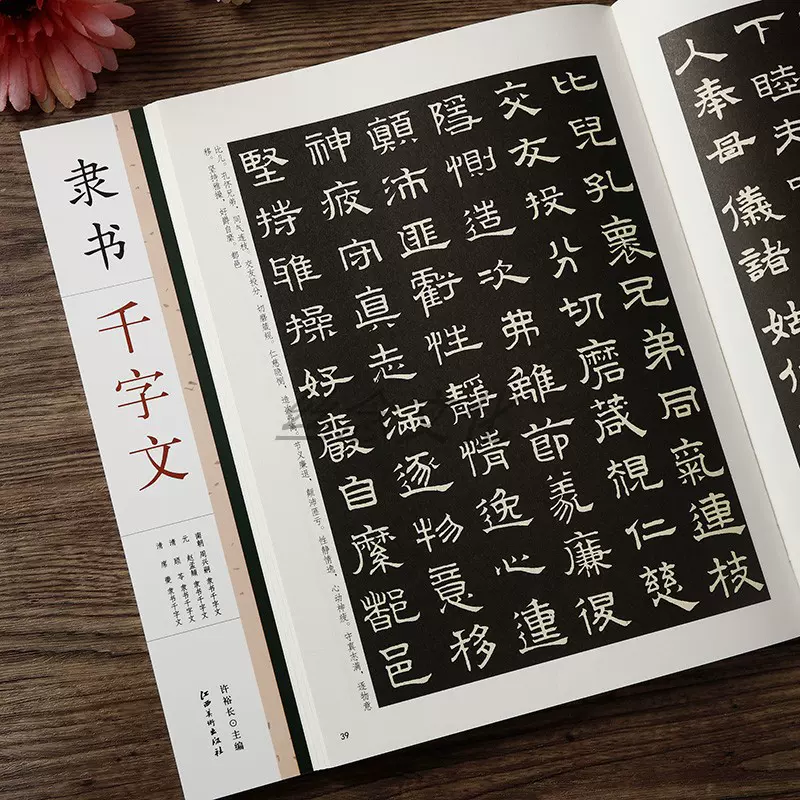 隶书
千字文
南朝 周兴嗣 隶书千字文
元 赵孟頫 隶书千字文
清 顾苓 隶书千字文
清 席夔 隶书千字文
许裕长⊙主编
江西美术出版社
下睦夫
人奉母儀諸姑
比兒孔褱兄弟同氣連枝
交友投分切磨葴規仁慈
隱惻造次弗離節義廉退
顛沛匪虧性靜情逸心動
神疲守真志滿逐物意移
堅持雅操好爵自縻都邑
比儿。孔怀兄弟，同气连枝。交友投分，切磨箴规。仁慈隐恻，造次弗离。节义廉退，颠沛匪亏。性静情逸，心动神疲。守真志满，逐物意
移。坚持雅操，好爵自縻。都邑
39